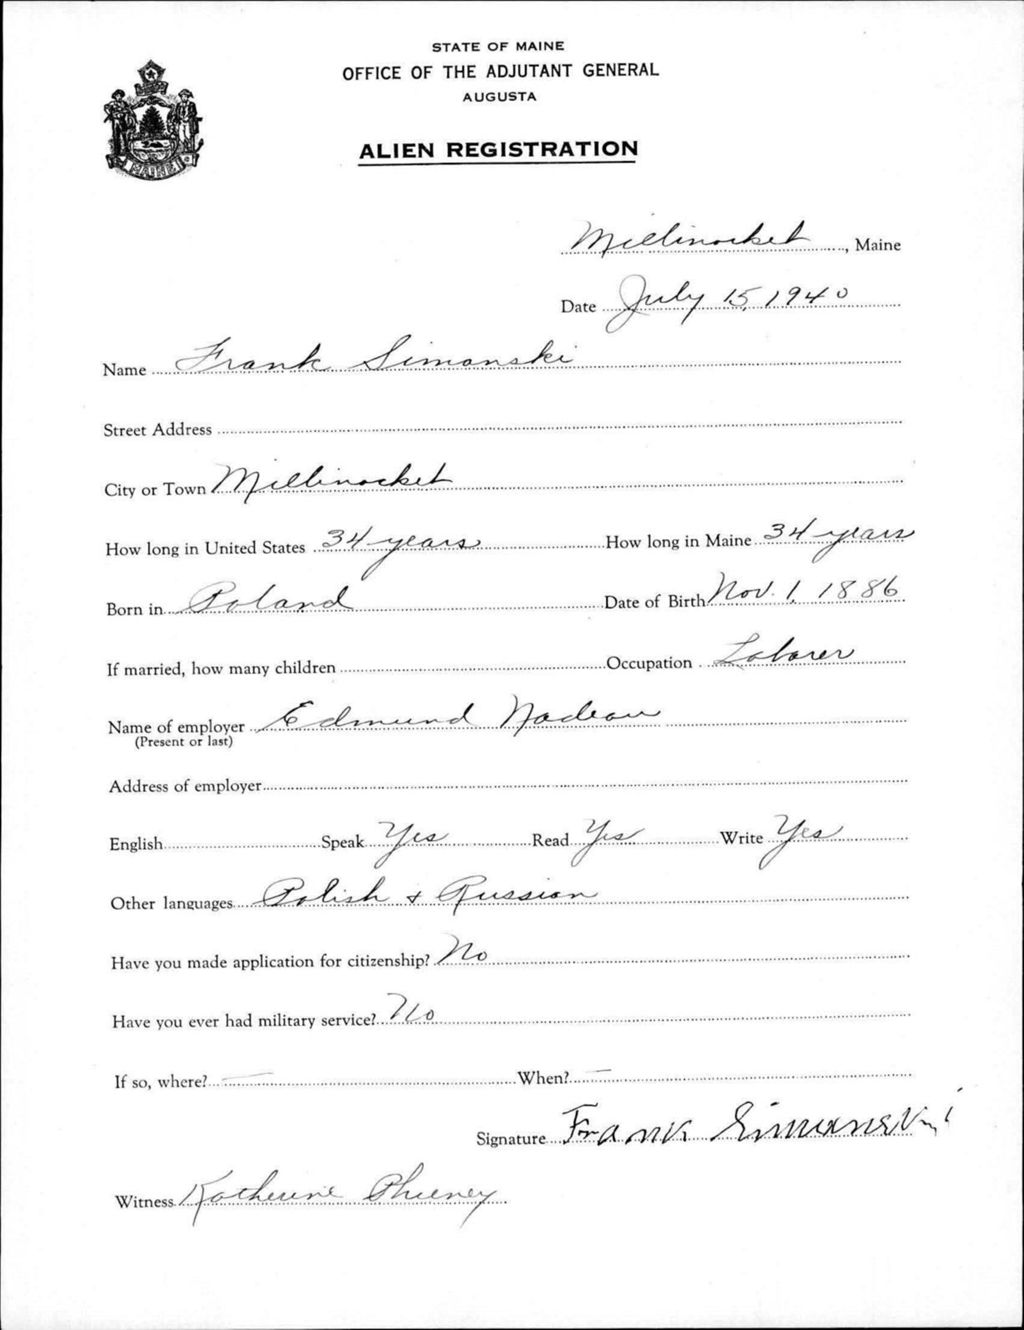 STATE OF MAINE
OFFICE OF THE ADJUTANT GENERAL
AUGUSTA
ALIEN REGISTRATION
MAINE
Millinocket, Maine
Date July 15, 1940
Name Frank Simanski
Street Address
City or Town Millinocket
How long in United States 34 years How long in Maine 34 years
Born in Poland Date of Birth Nov. 1, 1886
If married, how many children Occupation Laborer
Name of employer Edmund Nadeau
(Present or last)
Address of employer
English Speak Yes Read Yes Write Yes
Other languages Polish + Russian
Have you made application for citizenship? No
Have you ever had military service? No
If so, where? — When? —
Signature Frank Simanski
Witness Katherine